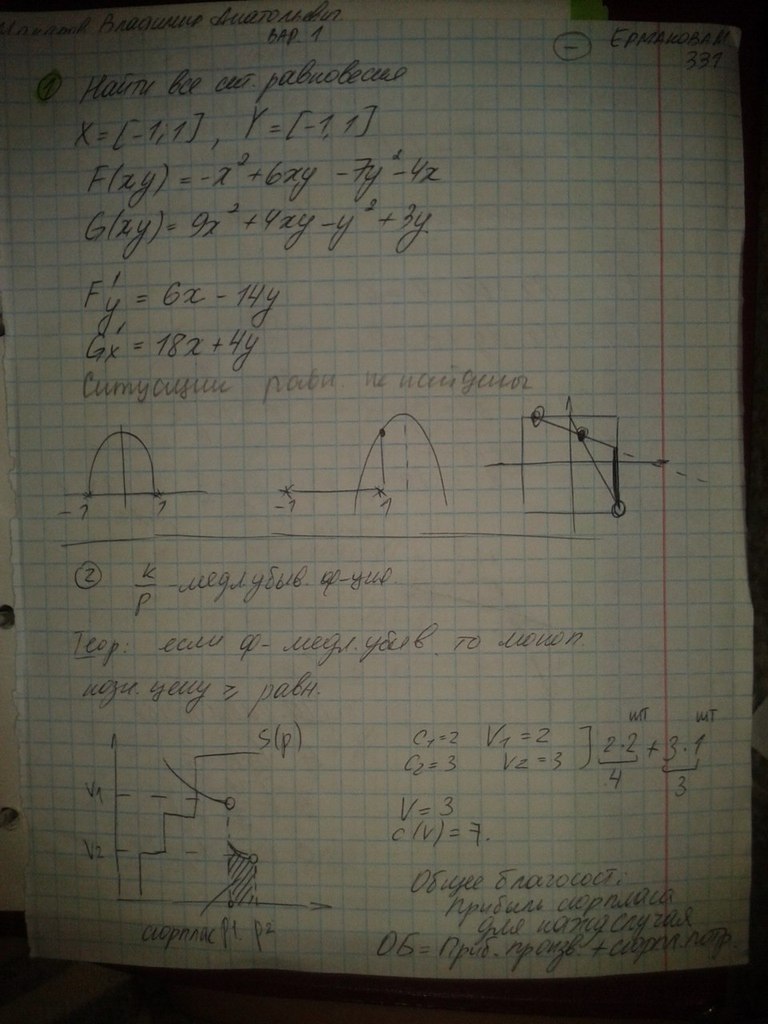 Владимир Анатольевич
ВАР. 1
ЕРМАКОВА М
331
① Найти все сит. равновесия
X = [-1, 1], Y = [-1, 1]
F(xy) = -x² + 6xy - 7y² - 4x
G(xy) = 9x² + 4xy - y² + 3y
F'y = 6x - 14y
G'x = 18x + 4y
Ситуации равн. не найдены
-1 1 -1 1 1
② k/p - медл. убыв. ф-ция
Теор: если ф- медл. убыв. то моноп.
цену ≥ равн.
S(p)
V1
V2
p1 p2
C1=2 V1=2 ] 2·2 + 3·1
шт шт
C2=3 V2=3
4 3
V=3
c(V)=7.
Общее благосост:
Прибыль сюрпласа
для кажд случая
ОБ = Приб. произв. + сюрпл. потр.